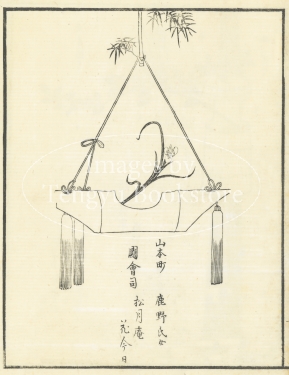 山本町 鹿野氏女
國會司 松月庵
花今日
Images by
Tengyu Bookstore